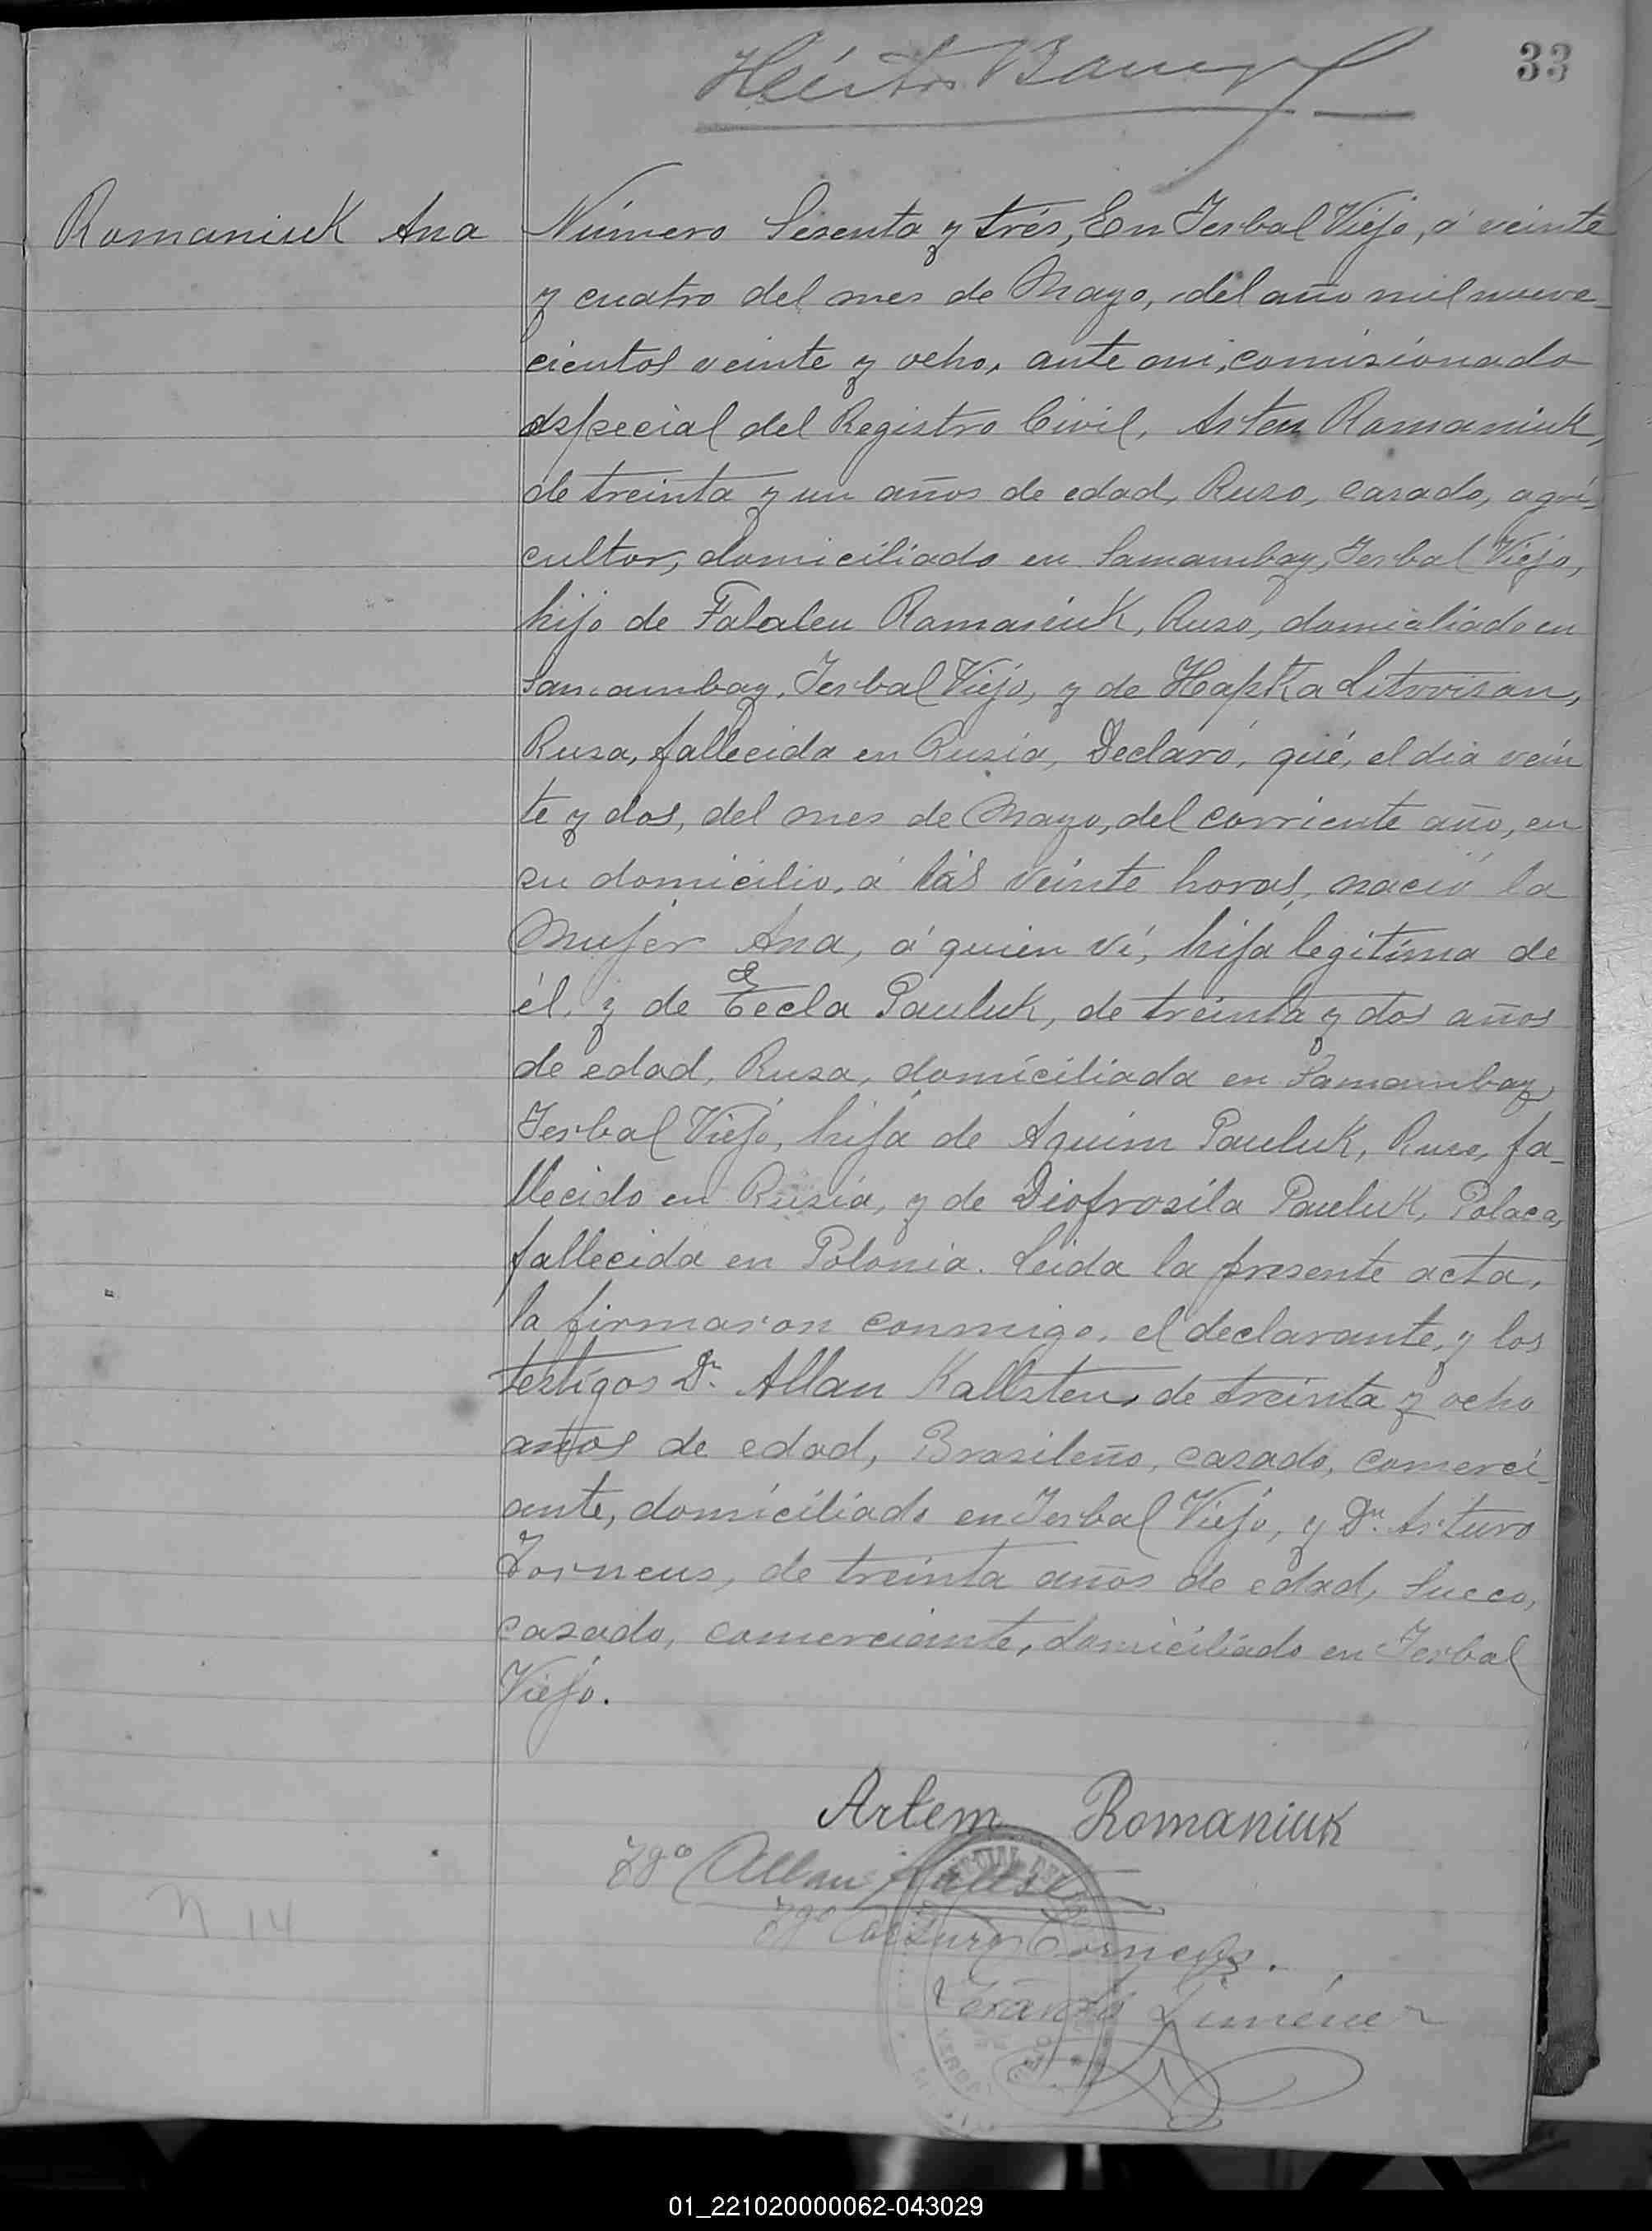 33
Héctor
Romaniuk Ana
Número Sesenta y trés, En Yerbal Viejo, á veinte
y cuatro del mes de Mayo, del año mil nueve-
cientos veinte y ocho, ante mi, comisionado
especial del Registro Civil, Artem Romaniuk,
de treinta y un años de edad, Ruso, casado, agri-
cultor, domiciliado en Samambay, Yerbal Viejo,
hijo de Falaleu Romaniuk, Ruso, domiciliado en
Samambay, Yerbal Viejo, y de Hapka Litvovisan,
Rusa, fallecida en Rusia, Declaró, qué, el dia vein
te y dos, del mes de Mayo, del corriente año, en
su domicilio, á las veinte horas, nació la
Mujer Ana, á quien ví, hija legitima de
él, y de Tecla Pauluk, de treinta y dos años
de edad, Rusa, domiciliada en Samambay,
Yerbal Viejo, hija de Aquim Pauluk, Ruso, fa-
llecido en Rusia, y de Diofrosila Pauluk, Polaca,
fallecida en Polonia. Leida la presente acta,
la firmaron conmigo, el declarante, y los
testigos Dn. Allan Kallsten, de treinta y ocho
años de edad, Brasileño, casado, comerci-
ante, domiciliado en Yerbal Viejo, y Dn. Arturo
Torneus, de treinta años de edad, Sueco,
casado, comerciante, domiciliado en Yerbal
Viejo.
Artem Romaniuk
Tgo Allan
Tgo Arturo Torneus.
Jiménez
N 14
01_221020000062-043029